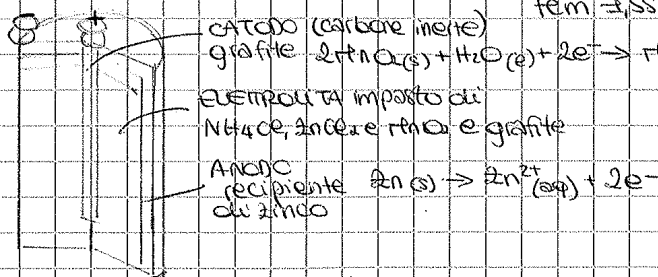 fem 1,55
+
CATODO (carbone inerte)
grafite 2MnO₂(s) + H₂O(l) + 2e⁻ → M
ELETTROLITA impasto di
NH₄Cl, ZnCl₂ e MnO₂ e grafite
ANODO
recipiente Zn(s) → Zn²⁺(aq) + 2e⁻
di zinco